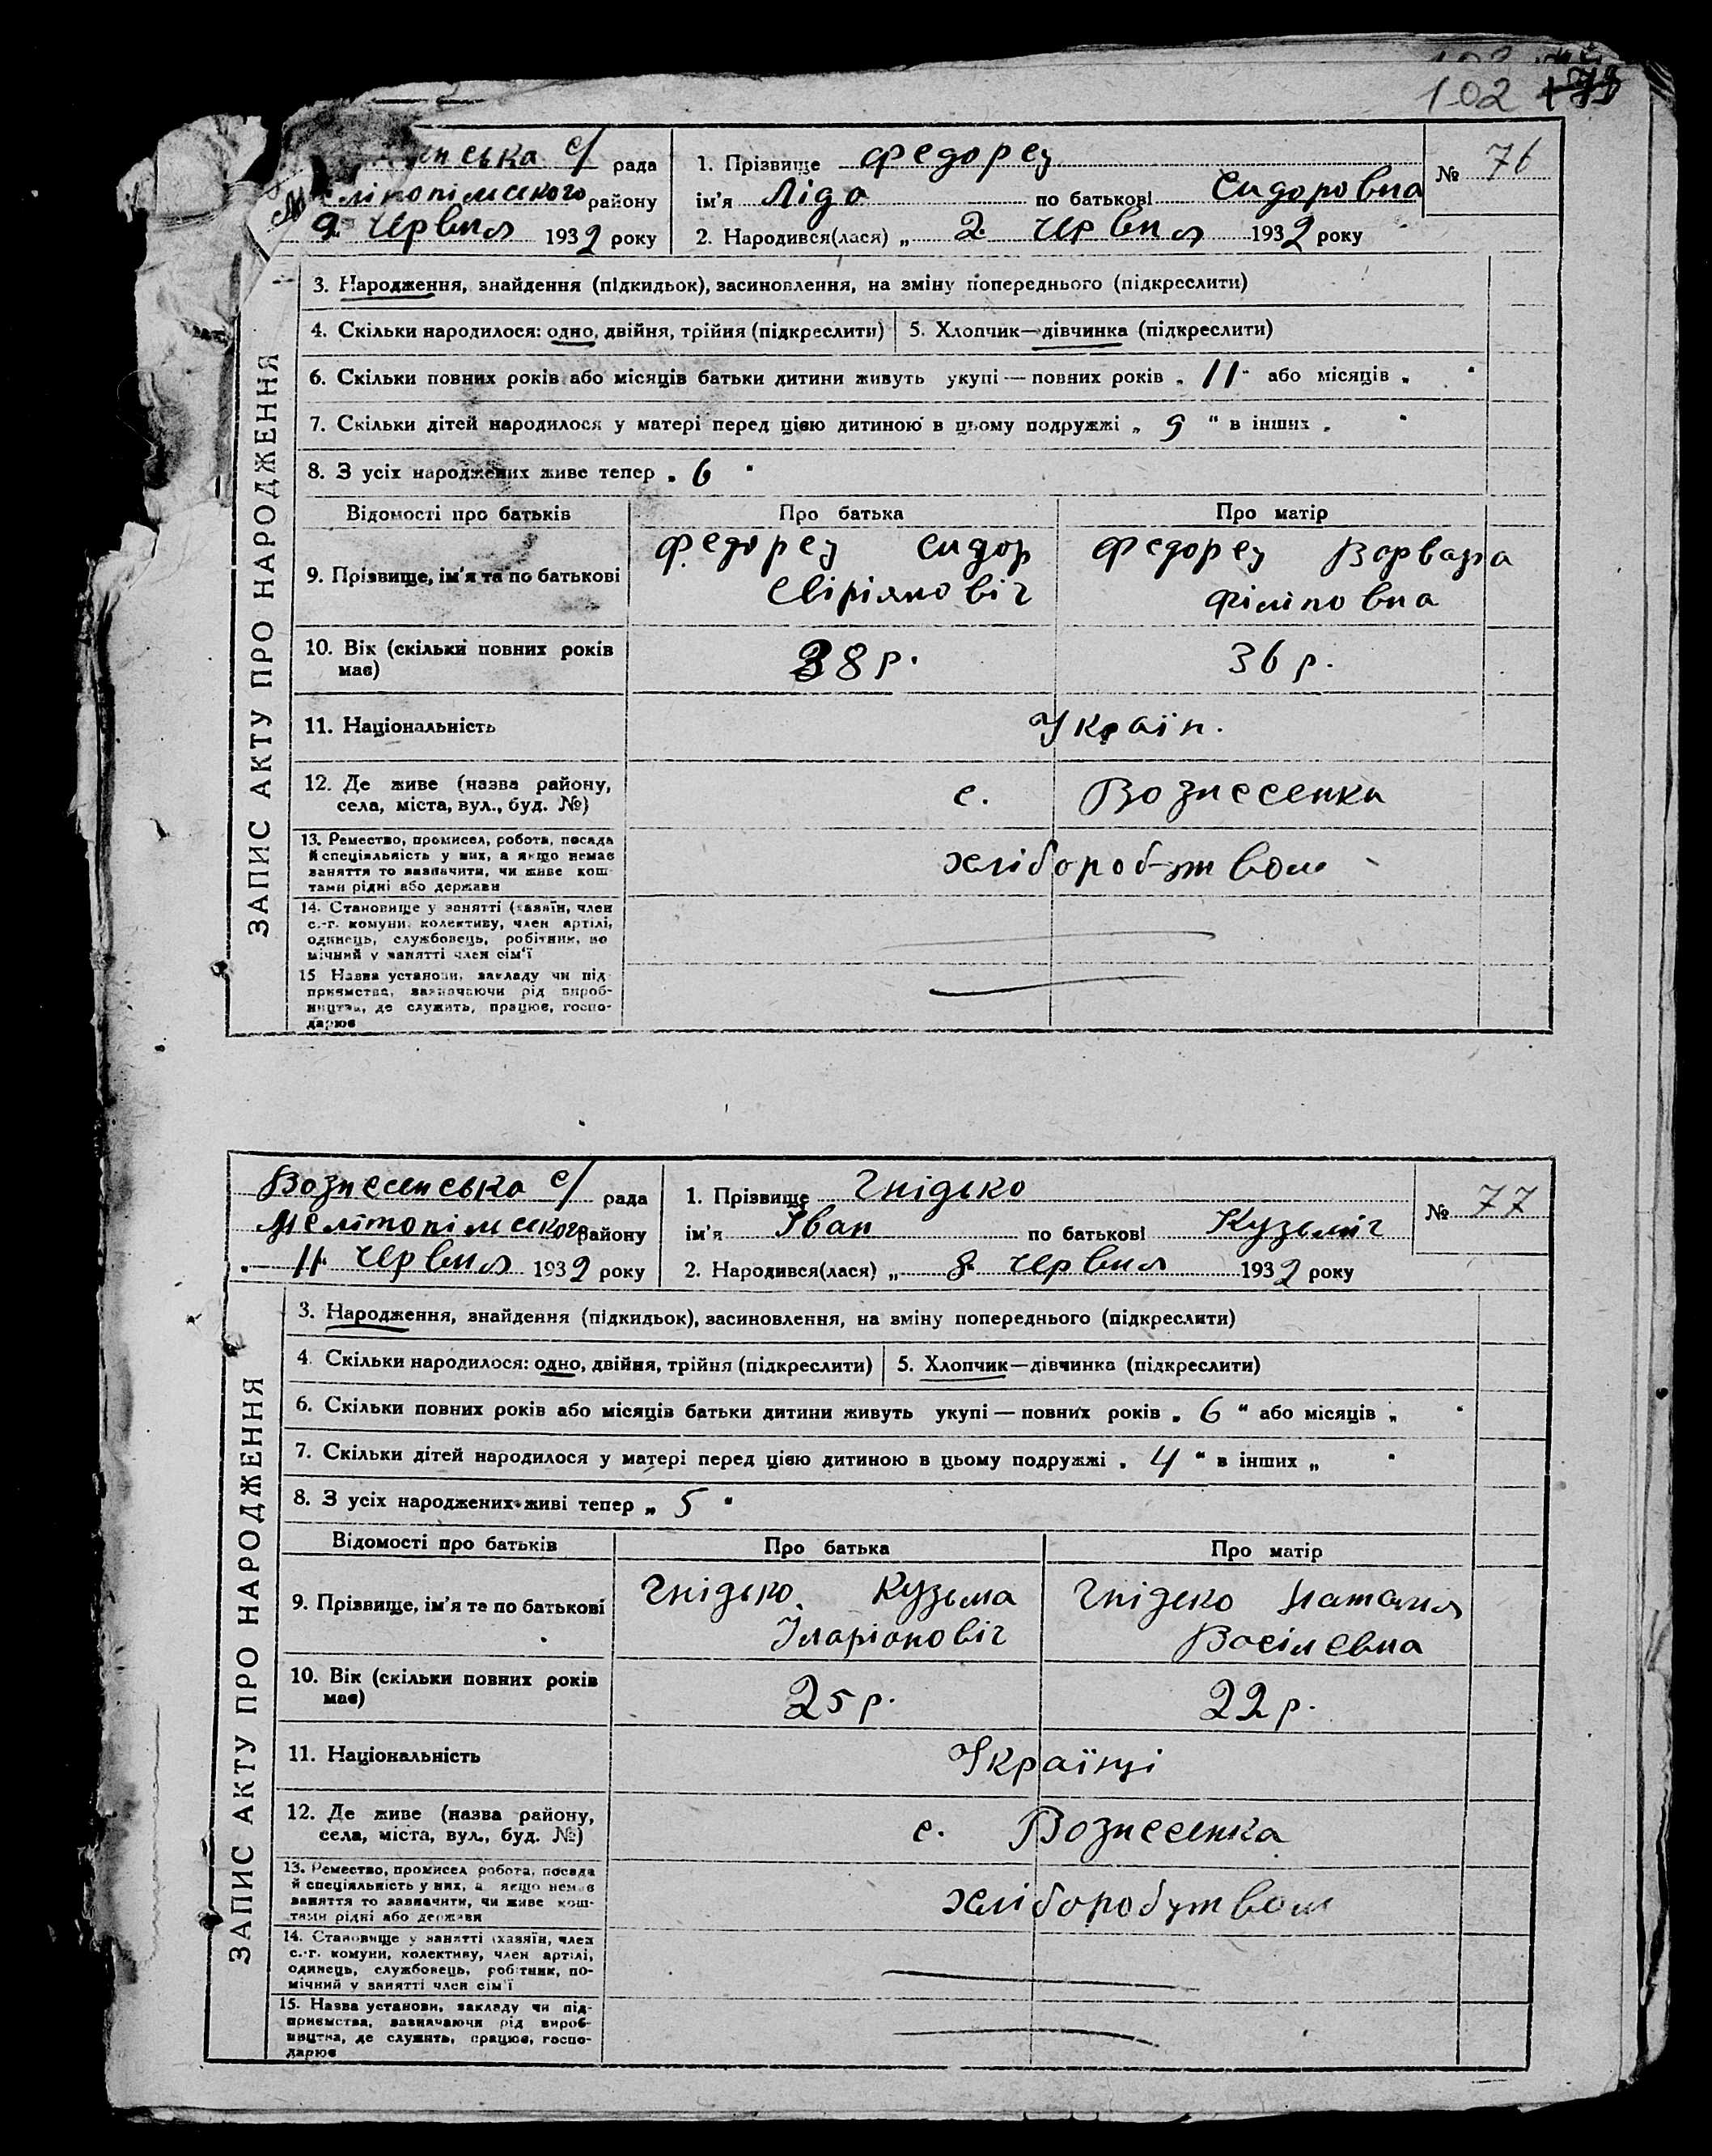 102
нська с/ рада
Мелітопільського району
9 червня 1932 року
1. Прізвище Федорец
ім'я Ліда по батькові Сидоровна
2. Народився(лася) „ 2 червня 1932 року
№ 76
ЗАПИС АКТУ ПРО НАРОДЖЕННЯ
3. Народження, знайдення (підкидьок), засиновлення, на зміну попереднього (підкреслити)
4. Скільки народилося: одно, двійня, трійня (підкреслити) 5. Хлопчик—дівчинка (підкреслити)
6. Скільки повних років або місяців батьки дитини живуть укупі — повних років „ 11 " або місяців „ "
7. Скільки дітей народилося у матері перед цією дитиною в цьому подружжі „ 9 " в інших „ "
8. З усіх народжених живе тепер „ 6 "
Відомості про батьків Про батька Про матір
9. Прізвище, ім'я та по батькові
Федорец Сидор
Свіріянові́ч
Федорец Варвара
Філіповна
10. Вік (скільки повних років
має)
38 р. 36 р.
11. Національність Україн.
12. Де живе (назва району,
села, міста, вул., буд. №)
с. Вознесенки
13. Ремество, промисел, робота, посада
й спеціяльність у них, а якщо немає
заняття то зазначити, чи живе кош-
тами рідні або держави
хліборобством
14. Становище у занятті (хазяїн, член
с.-г. комуни, колективу, член артілі,
одинець, службовець, робітник, по
мічний у занятті член сім'ї
15 Назва установи, закладу чи під-
приємства, зазначаючи рід вироб-
ництва, де служить, працює, госпо-
дарює
Вознесенська с/ рада
Мелітопільського району
11 червня 1932 року
1. Прізвище Гнідько
ім'я Іван по батькові Кузьміч
2. Народився(лася) „ 8 червня 1932 року
№ 77
ЗАПИС АКТУ ПРО НАРОДЖЕННЯ
3. Народження, знайдення (підкидьок), засиновлення, на зміну попереднього (підкреслити)
4. Скільки народилося: одно, двійня, трійня (підкреслити) 5. Хлопчик—дівчинка (підкреслити)
6. Скільки повних років або місяців батьки дитини живуть укупі — повних років „ 6 " або місяців „ "
7. Скільки дітей народилося у матері перед цією дитиною в цьому подружжі „ 4 " в інших „ "
8. З усіх народжених живі тепер „ 5 "
Відомості про батьків Про батька Про матір
9. Прізвище, ім'я та по батькові
Гнідько Кузьма
Іларіоновіч
Гнідеко Наталия
Васілевна
10. Вік (скільки повних років
має)
25 р. 22 р.
11. Національність Українці
12. Де живе (назва району,
села, міста, вул., буд. №)
с. Вознесенка
13. Ремество, промисел робота, посада
й спеціяльність у них, а якщо немає
заняття то зазначити, чи живе кош-
тами рідні або держави
хліборобутвом
14. Становище у занятті (хазяїн, член
с.-г. комуни, колективу, член артілі,
одинець, службовець, робітник, по-
мічний у занятті член сім'ї
15. Назва установи, закладу чи під-
приємства, зазначаючи рід вироб-
ництва, де служить, працює, госпо-
дарює